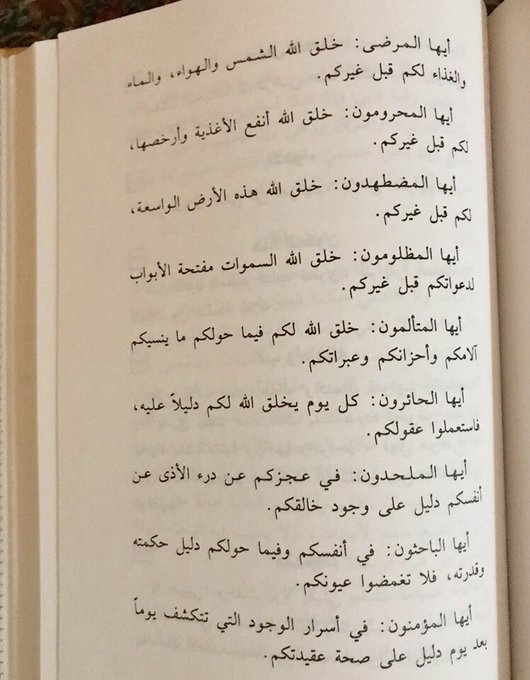 أيها المرضى: خلق الله الشمس والهواء، والماء
والغذاء لكم قبل غيركم.
أيها المحرومون: خلق الله أنفع الأغذية وأرخصها،
لكم قبل غيركم.
أيها المضطهدون: خلق الله هذه الأرض الواسعة،
لكم قبل غيركم.
أيها المظلومون: خلق الله السموات مفتحة الأبواب
لدعواتكم قبل غيركم.
أيها المتألمون: خلق الله لكم فيما حولكم ما ينسيكم
آلامكم وأحزانكم وعبراتكم.
أيها الحائرون: كل يوم يخلق الله لكم دليلاً عليه،
فاستعملوا عقولكم.
أيها الملحدون: في عجزكم عن درء الأذى عن
أنفسكم دليل على وجود خالقكم.
أيها الباحثون: في أنفسكم وفيما حولكم دليل حكمته
وقدرته، فلا تغمضوا عيونكم.
أيها المؤمنون: في أسرار الوجود التي تتكشف يوماً
بعد يوم دليل على صحة عقيدتكم.